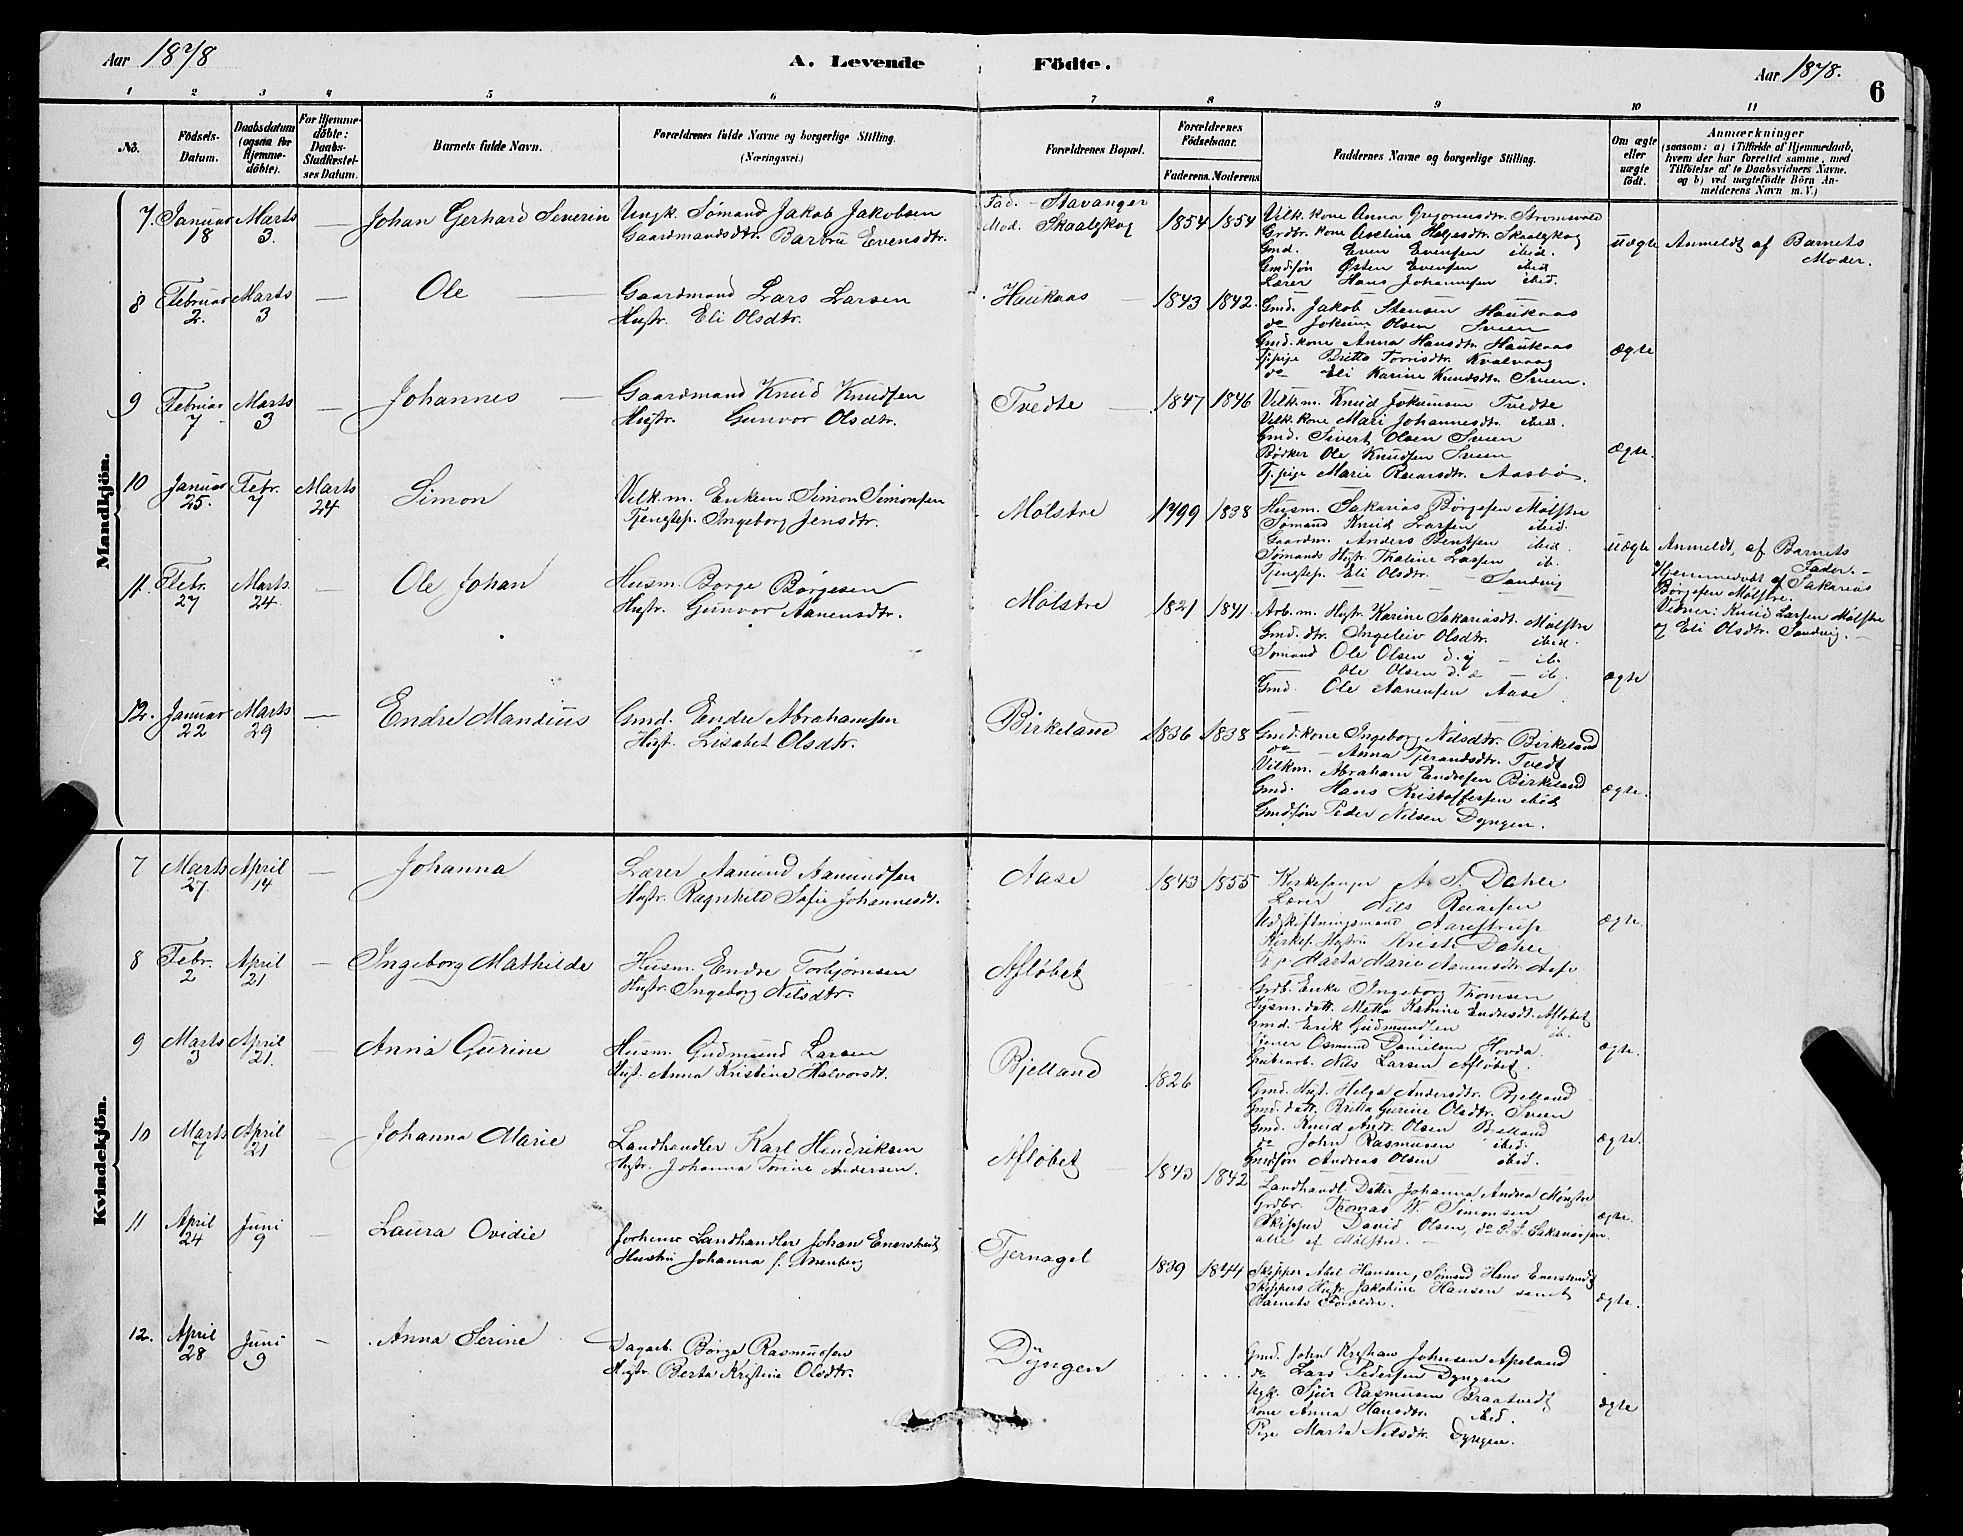 Aar 1878
A. Levende
Födte.
Aar 1878.
6
1 2 3 4 5 6 7 8 9 10 11
No.
Födsels-Datum.
Daabsdatum (ogsaa for Hjemme-döbte).
For Hjemme-döbte: Daabs-Stadfæstelses Datum.
Barnets fulde Navn.
Forældrenes fulde Navne og borgerlige Stilling. (Næringsvei.)
Forældrenes Bopæl.
Forældrenes Födselsaar.
Faderens. Moderens.
Faddernes Navne og borgerlige Stilling.
Om ægte eller uægte födt.
Anmærkninger
(saasom: a) i Tilfælde af Hjemmedaab, hvem der har forrettet samme, med Tilföielse af to Daabsvidners Navne, og b) ved uægtefödte Börn Anmelderens Navn m. V.)
Mandkjön.
7. Januar 18 Marts 3. — Johan Gerhard Severin
Ungk. Sømand Jakob Jakobsen
Gaardmandsdtr. Barbru Evensdtr.
Fad. - Stavanger
Mod. Skaalykog
1854 1854
Vilk. kone Anna Gregoriusdtr.
Grdbr. kone Helgesdtr. Skaalykog
Gmd. Even Evensen ibid.
Gmdsøn Østen Evensen ibid
Lærer Hans Johannesen ibid.
uægte Anmeldt af Barnets
Moder.
8 Februar 2. Marts 3 — Ole —
Gaardmand Lars Larsen
Hustr. Eli Olsdtr.
Haukaas
1843 1842.
Gmd. Jakob Stensen Haukaas
do Jokum Olsen Sveen
Gmd. kone Anna Hansdtr. Haukaas
Tj.pige Britta Torrisdtr. Kvalvaag
do Eli Karine Knudsdtr. Sveen.
Ægte
9 Februar 7 Marts 3 — Johannes —
Gaardmand Knud Knudsen
Hustr. Gunvor Olsdtr.
Tvedte
1847 1846
Vilk.m. Knud Jokumsen Tvedte
Vilk. kone Mari Johannesdtr. ibid.
Gmd. Sivert Olsen Sveen
Bødker Ole Knudsen Sveen
Tj.pige Marie Aasbø
Ægte.
10 Januar 25. Febr. 7 Marts 24 Simon
Vilk.m. Enkem. Simon Simonsen
Tjenstep. Ingeborg Jensdtr.
Molstre
1799 1838
Husm. Sakarias Børgesen Mølstre
Sømand Knud Larsen ibid.
Gaardm. Anders Bentsen ibid.
Sømands Hustr. Thaline Larsen ib.
Tjenstep. Eli Olsdtr. — Sandvig
uægte Anmeldt, af Barnets
Fader. -
Hjemmedøbt af Sakarias
Børgesen Mølstre.
Vidner: Knud Larsen Mølstre
og Eli Olsdtr. Sandvig. -
11. Febr. 27 Marts. 24. — Ole Johan
Husm. Børge Børgesen
Hustr. Gunvor Aanensdtr.
Molstre
1821 1841.
Arb.m. Hustr. Karine Sakariasdt. Mølstre
Gmd. dtr. Ingeleiv Olsdtr. ibid.
Sømand Ole Olsen d.y — ib.
— Ole Olsen d.æ — ib.
Gmd. Ole Aanensen Aase.
ægte
12. Januar 22 Marts 29 — Endre Mandius
Gmd. Endre Abrahamsen
Hust. Lisabet Olsdtr.
Birkeland
1836 1838
Gmd. kone Ingeborg Nilsdtr. Birkeland
do — Anna Tjerandsdtr. Tvedt
Vilkm. Abraham Endresen Birkeland
Gmd. Hans Kristoffersen ibid
Gmdsøn Peder Nilsen Dyngen.
ægte.
Kvindekjön.
7 Marts 27. April 14 — Johanna
Lærer Aamund Aamundsen
Hustr. Ragnhild Sofie Johannesdt.
Aase
1843 1855
Kirkesanger A. S. Dahle
Lærer Nils
Udskiftningsmand Aarestrup
Kirkes. Hustru Dahle
Marta Marie Aanensdtr.
ægte.
8 Febr. 2 April 21 — Ingeborg Mathilde
Husm. Endre Torbjørnsen
Hustr. Ingeborg Nilsdtr.
Afløbet
Grdb. Enke Ingeborg Thomsen
Husm. datt. Metta Katrine Endresdt. Afløbet
Gmd. Erik Gudmundsen ib.
Tjener Osmund Danielsen Hovda.
Grubearb. Nils Larsen Afløbet.
ægte.
9 Marts 3 April 21. — Anna Gurine
Husm. Gudmund Larsen
Hust. Anna Kristine Halvorsdt.
Bjelland
1826
Gmd. Hust. Helga Andersdtr. Bjelland
Gmd. datt. Britta Gurine Olsdtr. Sveen
Gmd. Knud Andr. Olsen Bjelland
do John Rasmusen ibid.
Gmdsøn Andreas Olsen ibid.
ægte.
10 Marts 7 April 21 — Johanna Marie
Landhandler Karl Hendriksen
Hustr. Johanna Torine Andersen.
Afløbet
1843 1842
Landhandl. Datter Johanna Andrea Mønstre
Grdbr. Thomas W. Simonsen
Skipper David Olsen, do Sakariasen.
alle af Mølstre. —
ægte.
11 April 24 Juni 9 — Laura Ovidie
Forhenv. Landhandler Johan Enerstvedt
Hustru Johanna f.
Tjernagel
1839 1844
Skipper Abel Hansen, Sømand Hans Enerstvedt
Skippers Hustr. Jakobine Hansen samt
Barnets Forældre.
ægte.
12. April 28 Juni 9 — Anna Serine
Dagarb. Børge Rasmusen
Hustr. Berta Kristina Olsdtr.
Dyngen
Gmd. John Kristian Johnsen Apeland
do Lars Pedersen Dyngen
Ugk. Sjur Rasmusen Braatvedt
Kone Anna Hansdtr. ibid.
Pige Marta Nilsdtr. Dyngen.
ægte